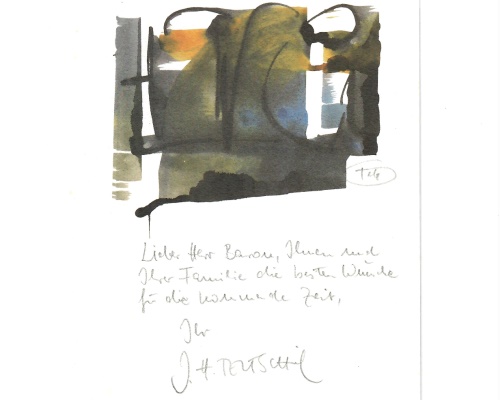 Lieber Herr Baron, Ihnen und
Ihrer Familie die besten Wünsche
für die kommende Zeit,
Ihr